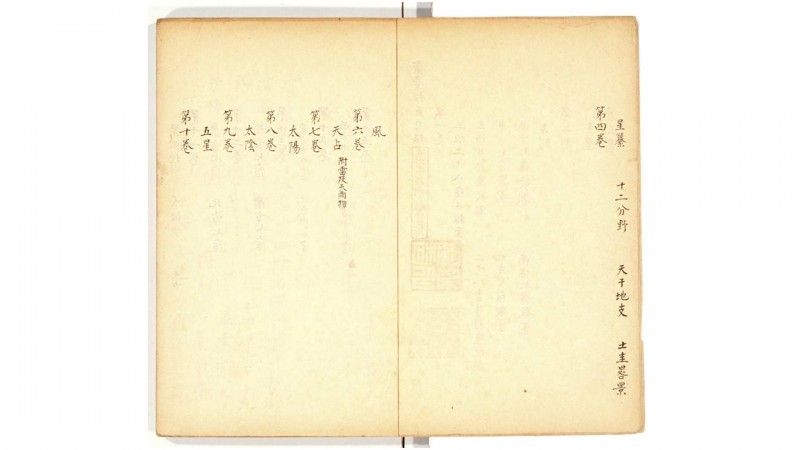 星纂 十二分野 天干地支 土圭晷景
第四卷
風
第六卷
天占 附雷及天雨物
第七卷
太陽
第八卷
太陰
第九卷
五星
第十卷